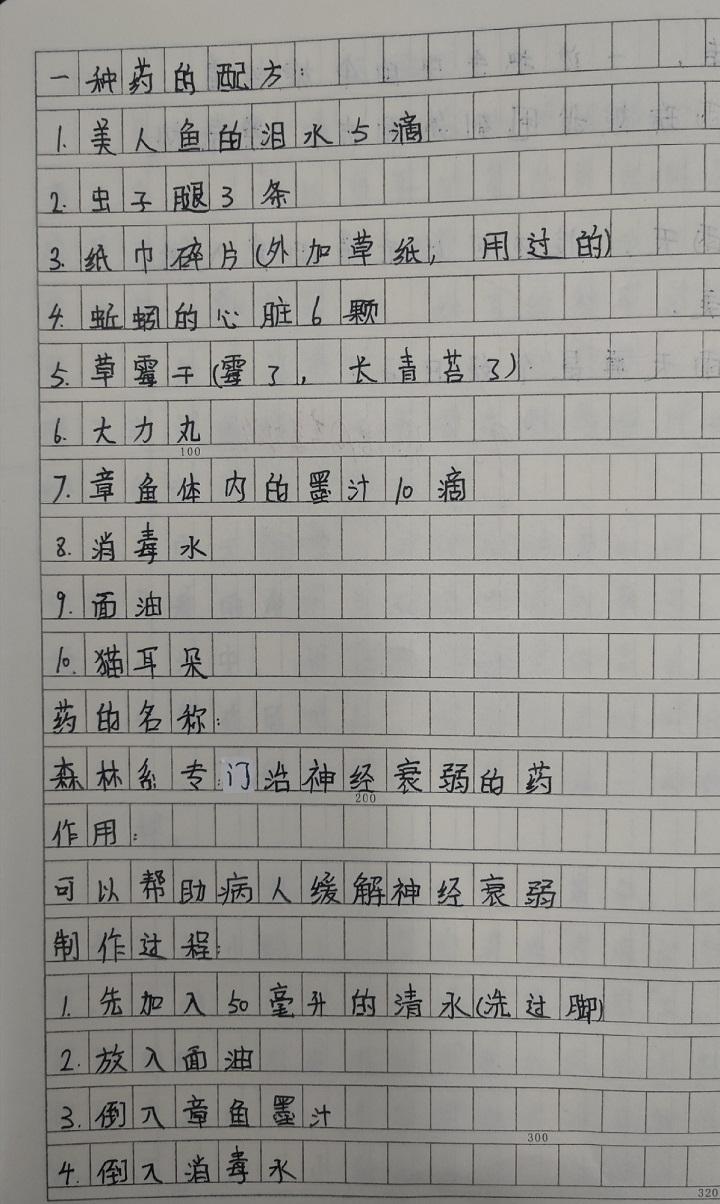 一种药的配方：
1. 美人鱼的泪水5滴
2. 虫子腿3条
3. 纸巾碎片(外加草纸，用过的)
4. 蚯蚓的心脏6颗
5. 草霉干(霉了，长青苔了)
6. 大力丸
100
7. 章鱼体内的墨汁10滴
8. 消毒水
9. 面油
10. 猫耳朵
药的名称：
森林系专门治神经衰弱的药
200
作用：
可以帮助病人缓解神经衰弱
制作过程：
1. 先加入50毫升的清水(洗过脚)
2. 放入面油
3. 倒入章鱼墨汁
300
4. 倒入消毒水
320